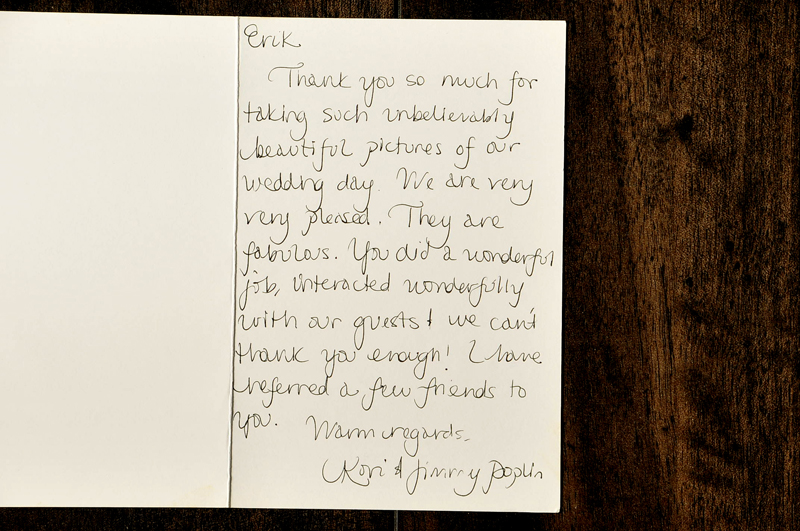 Erik
Thank you so much for
taking such unbelievably
beautiful pictures of our
wedding day. We are very
very pleased. They are
fabulous. You did a wonderful
job, interacted wonderfully
with our guests & we can't
thank you enough! I have
referred a few friends to
you.
Warm regards,
Kori & Jimmy Poplin